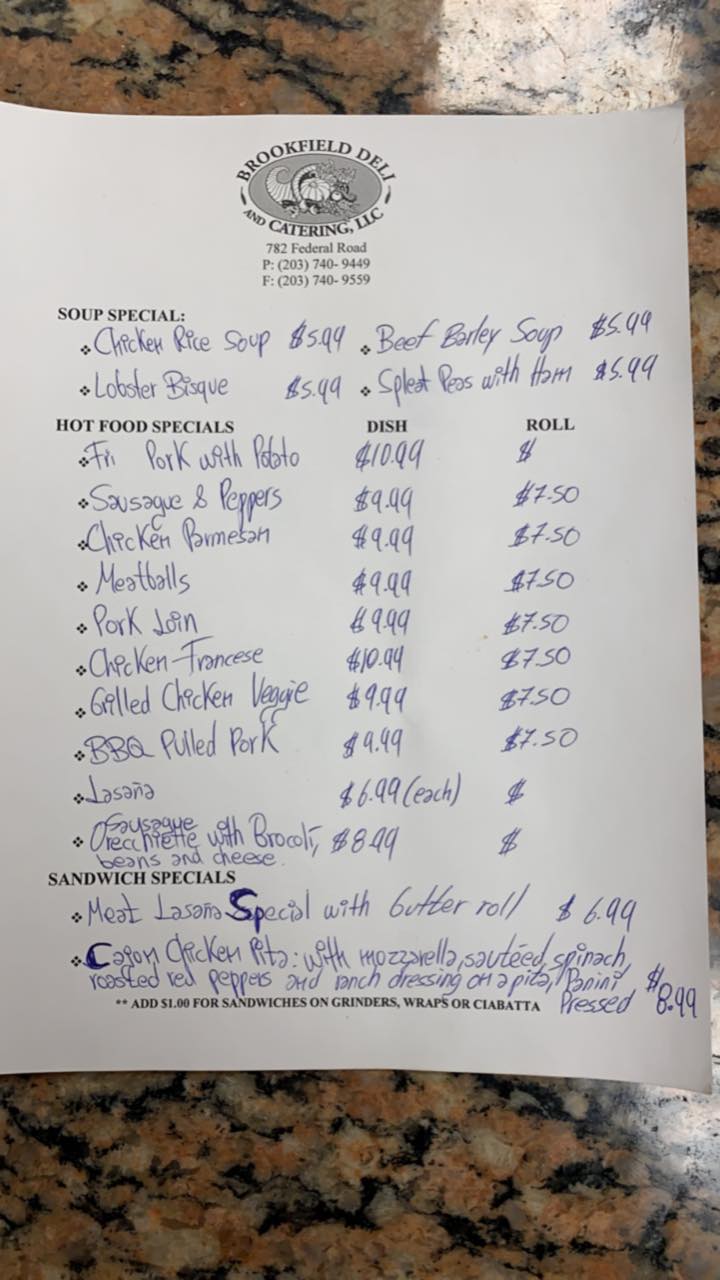 BROOKFIELD DELI
AND CATERING, LLC
782 Federal Road
P: (203) 740- 9449
F: (203) 740- 9559
SOUP SPECIAL:
❖ Chicken Rice Soup $5.99 ❖ Beef Barley Soup $5.99
❖ Lobster Bisque $5.99 ❖ Spleat Peas with Ham $5.99
HOT FOOD SPECIALS DISH ROLL
❖ Fri Pork with Potato $10.99 $
❖ Sausague & Peppers $9.99 $7.50
❖ Chicken Parmesan $9.99 $7.50
❖ Meatballs $9.99 $7.50
❖ Pork Loin $9.99 $7.50
❖ Chicken Francese $10.99 $7.50
❖ Grilled Chicken Veggie $9.99 $7.50
❖ BBQ Pulled Pork $9.99 $7.50
❖ Lasaña $6.99 (each) $
Sausague
❖ Orecchiette with Brocoli, $8.99 $
beans and cheese.
SANDWICH SPECIALS
❖ Meat Lasaña Special with butter roll $6.99
❖ Cajon Chicken Pita: with mozzarella, sautéed, spinach,
roasted red peppers and ranch dressing on a pita, Panini
** ADD $1.00 FOR SANDWICHES ON GRINDERS, WRAPS OR CIABATTA Pressed $8.99